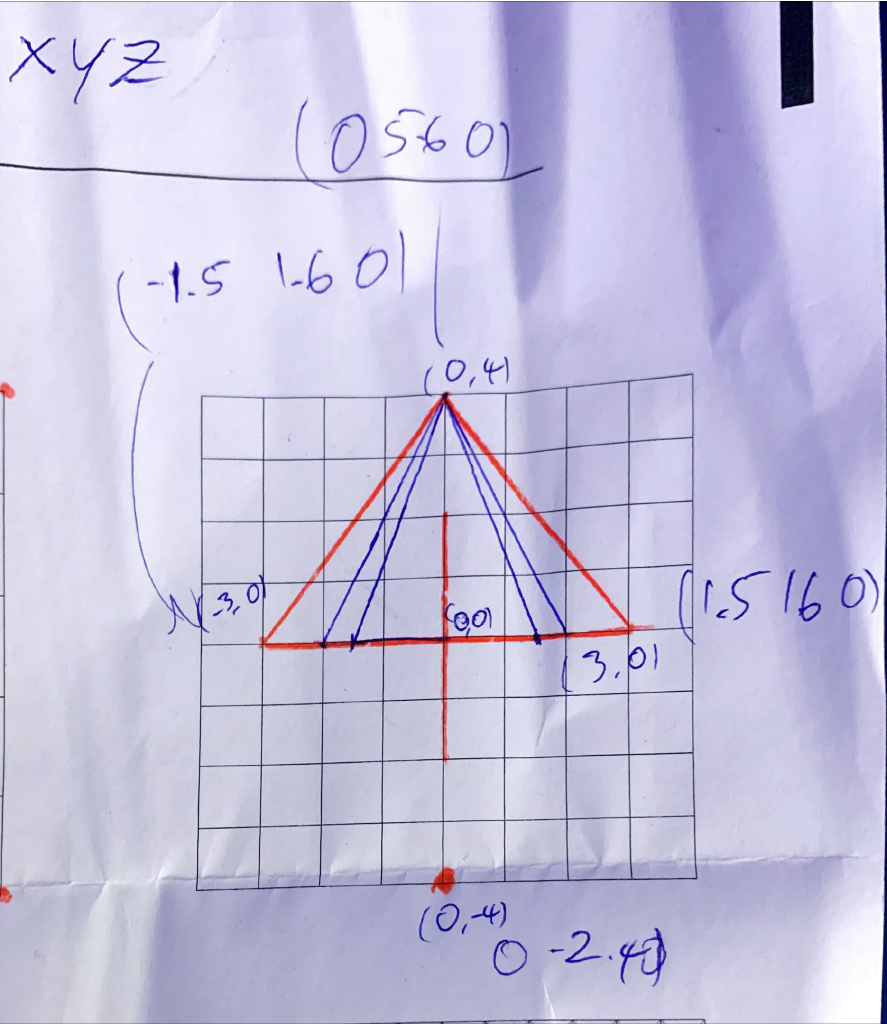 XYZ
(0 5.6 0)
(-1.5 1.6 0)
(0,4)
(-3,0)
(0,0)
(1.5 1.6 0)
(3,0)
(0,-4)
0 -2.4